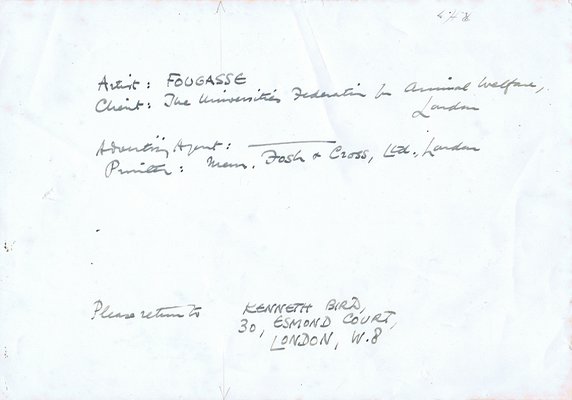 Artist: FOUGASSE
Client: The Universities Federation for Animal Welfare,
London
Advertising Agent: ———
Printer: Messrs. Fosh & Cross, Ltd., London
Please return to KENNETH BIRD,
30, ESMOND COURT,
LONDON, W.8